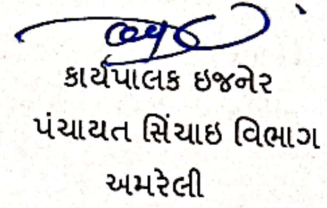 કાર્યપાલક ઇજનેર
પંચાયત સિંચાઇ વિભાગ
અમરેલી